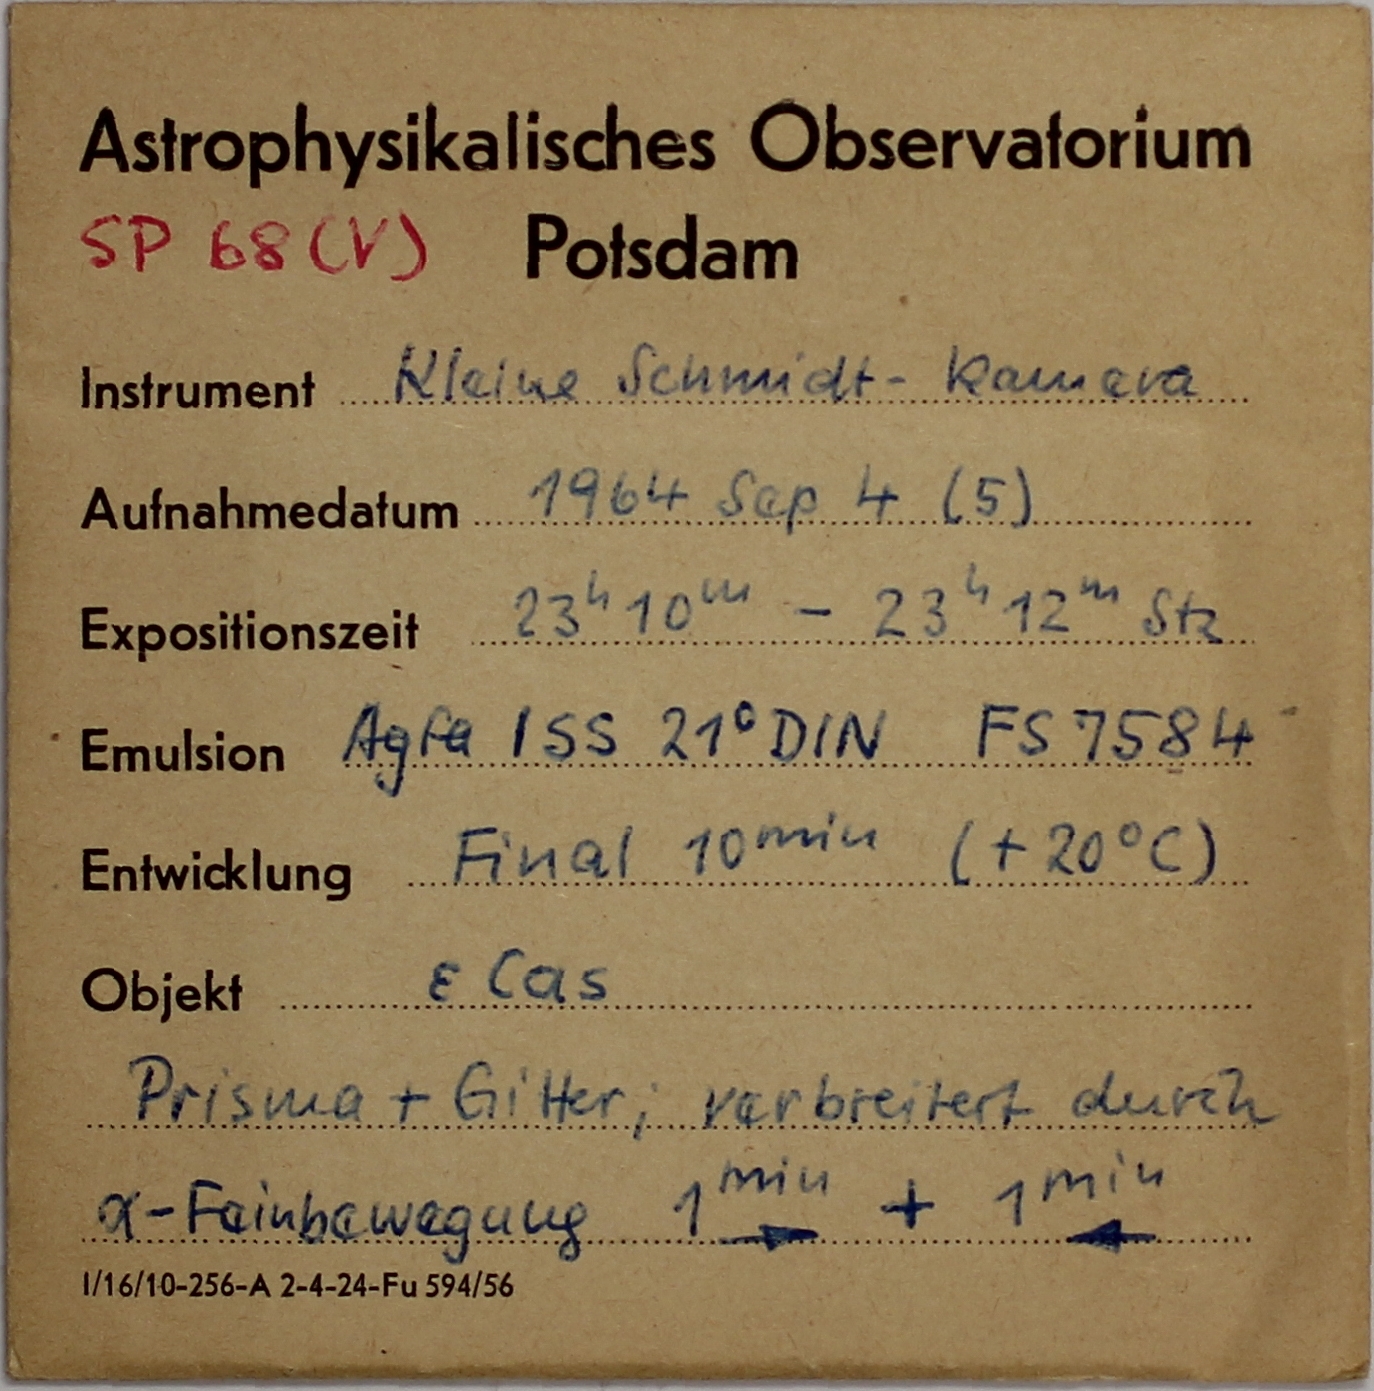 Astrophysikalisches Observatorium
SP 68 (V) Potsdam
Instrument Kleine Schmidt-Kamera
Aufnahmedatum 1964 Sep 4 (5)
Expositionszeit 23ʰ10ᵐ – 23ʰ12ᵐ Stz
Emulsion Agfa ISS 21° DIN FS 7584
Entwicklung Final 10ᵐⁱⁿ (+20°C)
Objekt ε Cas
Prisma + Gitter; verbreitert durch
α-Feinbewegung 1ᵐⁱⁿ → + 1ᵐⁱⁿ ←
I/16/10-256-A 2-4-24-Fu 594/56